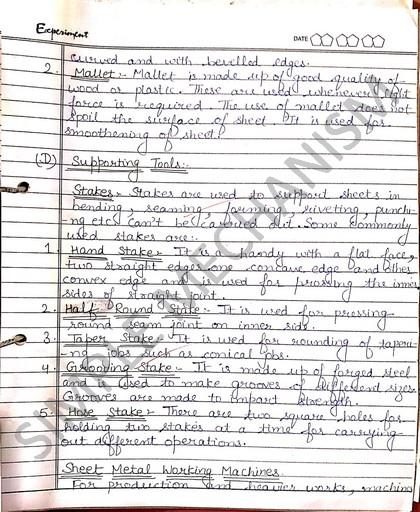 Experiment
DATE
curved and with bevelled edges.
2. Mallet:- Mallet is made up of good quality of
wood or plastic. These are used whenever light
force is required. The use of mallet does not
spoil the surface of sheet. It is used for
smoothening of sheet.
(D) Supporting Tools:-
Stakes - Stakes are used to support sheets in
bending, seaming, forming, riveting, punchi-
-ng etc. can't be carried out. Some commonly
used stakes are:-
1. Hand Stake:- It is a handy with a flat face,
two straight edges one concave edge and other
convex edge and is used for pressing the inner
sides of straight joint.
2. Half Round Stake:- It is used for pressing
round seam joint on inner side.
3. Taper Stake:- It is used for rounding of taperi-
-ng jobs such as conical jobs.
4. Grooving Stake:- It is made up of forged steel
and used to make grooves of different sizes.
Grooves are made to impart strength.
5. Hose Stake:- There are two square holes for
holding two stakes at a time for carrying
out different operations.
Sheet Metal Working Machines
For production and heavier works, machine
SIMPLE MECHANISM